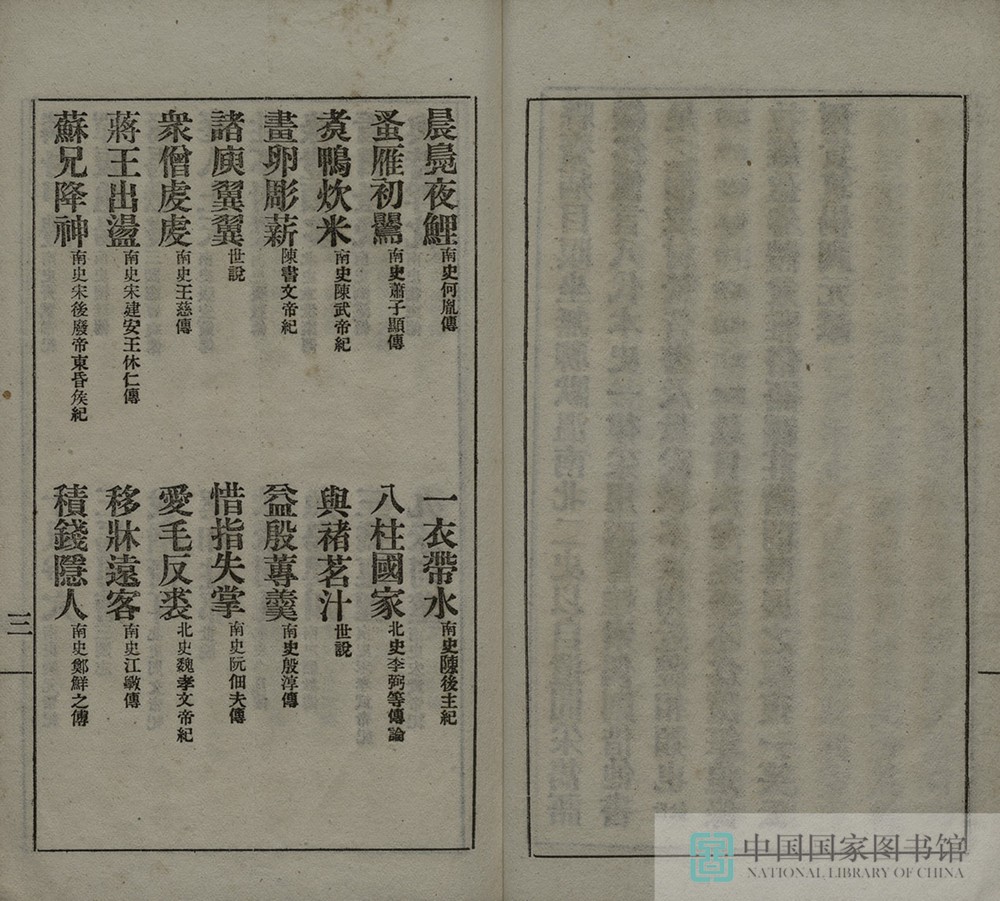 晨鳧夜鯉 南史何胤傳 一衣帶水 南史陳後主紀
蚤雁初鸎 南史蕭子顯傳 八柱國家 北史李弼等傳論
煑鴨炊米 南史陳武帝紀 與褚茗汁 世說
畫卵彫薪 陳書文帝紀 益殷蓴羹 南史殷淳傳
諸庾翼翼 世說 惜指失掌 南史阮佃夫傳
衆僧虔虔 南史王慈傳 愛毛反裘 北史魏孝文帝紀
蔣王出盪 南史宋建安王休仁傳 移牀遠客 南史江斆傳
蘇兄降神 南史宋後廢帝東昏矦紀 積錢隱人 南史鄭鮮之傳
三
中国国家图书馆
NATIONAL LIBRARY OF CHINA